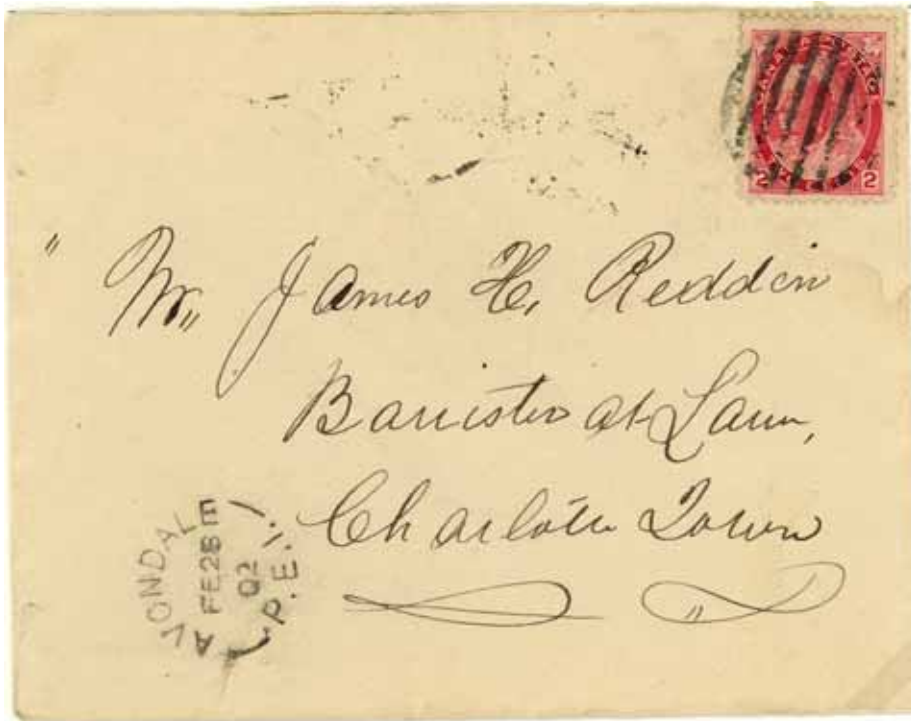 CANADA POSTAGE
2 2
" Mr,, James H, Reddin
Barrister at Law,
Charlotte Town
"
AVONDALE
FE 28
02
P.E.I.